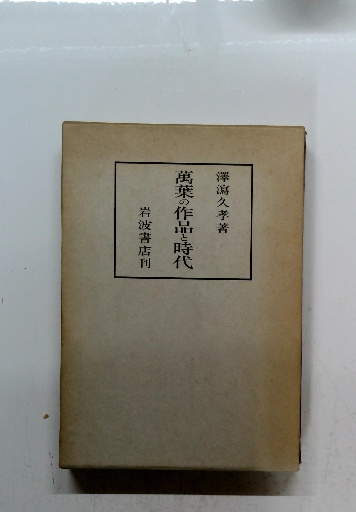 澤瀉久孝著
萬葉の作品と時代
岩波書店刊